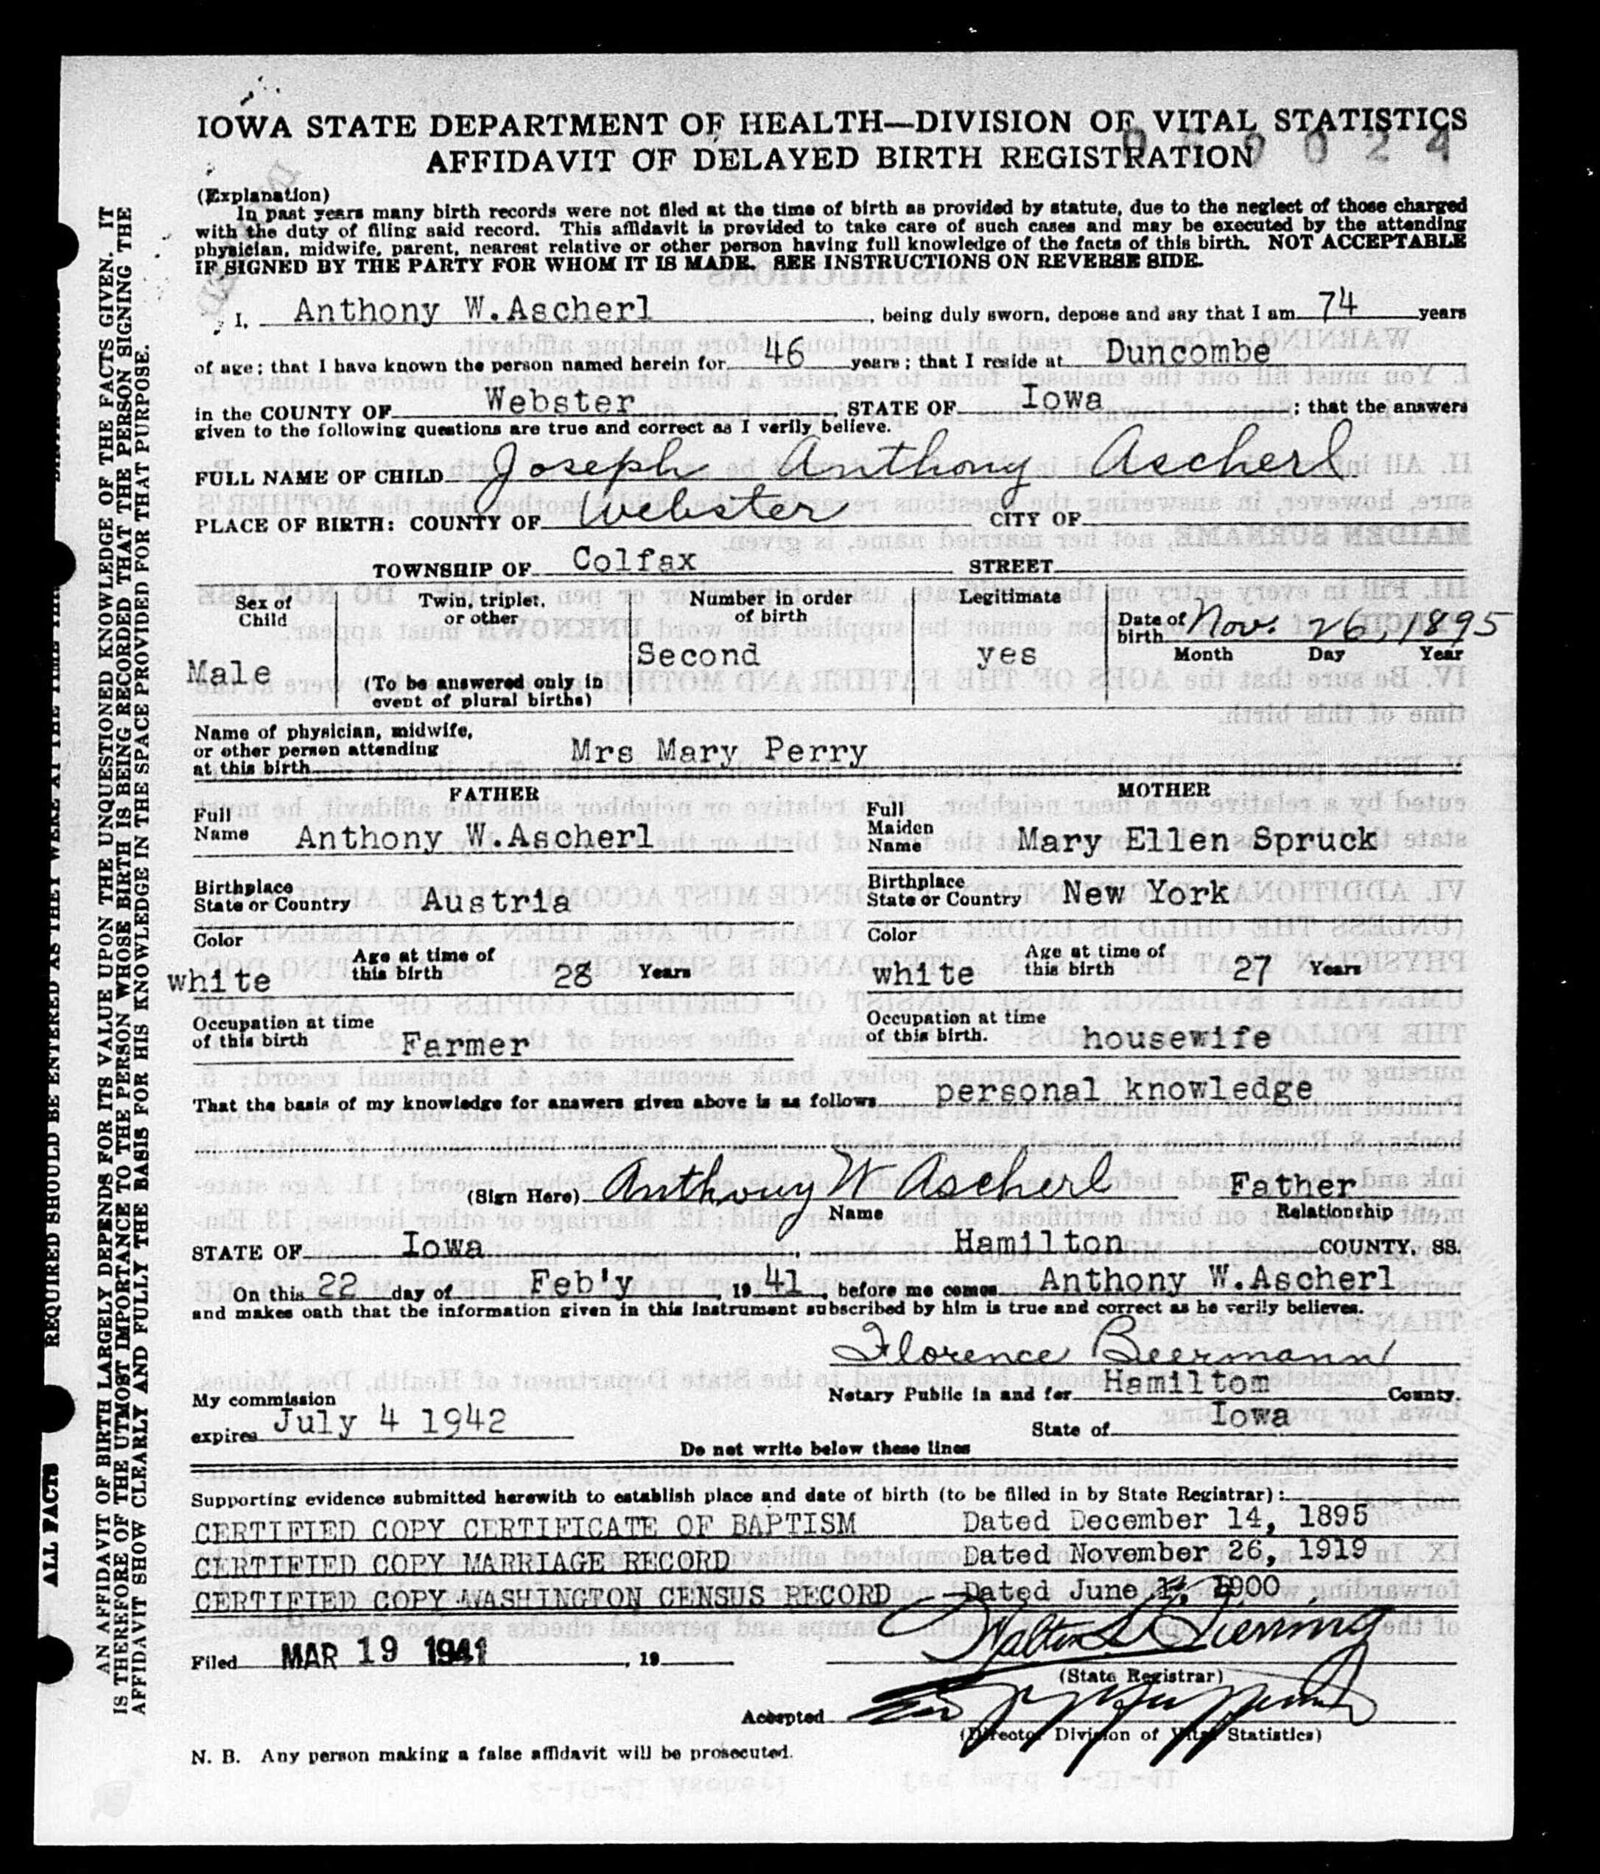 IOWA STATE DEPARTMENT OF HEALTH—DIVISION OF VITAL STATISTICS
AFFIDAVIT OF DELAYED BIRTH REGISTRATION
(Explanation)
In past years many birth records were not filed at the time of birth as provided by statute, due to the neglect of those charged
with the duty of filing said record. This affidavit is provided to take care of such cases and may be executed by the attending
physician, midwife, parent, nearest relative or other person having full knowledge of the facts of this birth. NOT ACCEPTABLE
IF SIGNED BY THE PARTY FOR WHOM IT IS MADE. SEE INSTRUCTIONS ON REVERSE SIDE.
I, Anthony W.Ascherl, being duly sworn, depose and say that I am 74 years
of age; that I have known the person named herein for 46 years; that I reside at Duncombe
in the COUNTY OF Webster, STATE OF Iowa; that the answers
given to the following questions are true and correct as I verily believe.
FULL NAME OF CHILD Joseph Anthony Ascherl
PLACE OF BIRTH: COUNTY OF Webster CITY OF
TOWNSHIP OF Colfax STREET
Sex of Child Male
Twin, triplet, or other (To be answered only in event of plural births)
Number in order of birth Second
Legitimate yes
Date of birth Nov. 26, 1895
Month Day Year
Name of physician, midwife,
or other person attending
at this birth Mrs Mary Perry
FATHER MOTHER
Full Name Anthony W.Ascherl Full Maiden Name Mary Ellen Spruck
Birthplace State or Country Austria Birthplace State or Country New York
Color white Age at time of this birth 28 Years Color white Age at time of this birth 27 Years
Occupation at time of this birth Farmer Occupation at time of this birth. housewife
That the basis of my knowledge for answers given above is as follows personal knowledge
(Sign Here) Anthony W Ascherl Father
Name Relationship
STATE OF Iowa Hamilton COUNTY, SS.
On this 22 day of Feb'y, 19 41, before me comes Anthony W.Ascherl
and makes oath that the information given in this instrument subscribed by him is true and correct as he verily believes.
Florence Beermann
Notary Public in and for Hamiltom County.
My commission
expires July 4 1942 State of Iowa
Do not write below these lines
Supporting evidence submitted herewith to establish place and date of birth (to be filled in by State Registrar):
CERTIFIED COPY CERTIFICATE OF BAPTISM Dated December 14, 1895
CERTIFIED COPY MARRIAGE RECORD Dated November 26, 1919
CERTIFIED COPY WASHINGTON CENSUS RECORD Dated June 1900
Filed MAR 19 1941, 19
(State Registrar)
Accepted
(Director Division of Vital Statistics)
N. B. Any person making a false affidavit will be prosecuted.
AN AFFIDAVIT OF BIRTH LARGELY DEPENDS FOR ITS VALUE UPON THE UNQUESTIONED KNOWLEDGE OF THE FACTS GIVEN. IT
IS THEREFORE OF THE UTMOST IMPORTANCE TO THE PERSON WHOSE BIRTH IS BEING RECORDED THAT THE PERSON SIGNING THE
AFFIDAVIT SHOW CLEARLY AND FULLY THE BASIS FOR HIS KNOWLEDGE IN THE SPACE PROVIDED FOR THAT PURPOSE.
ALL FACTS REQUIRED SHOULD BE ENTERED AS THEY WERE AT THE TIME